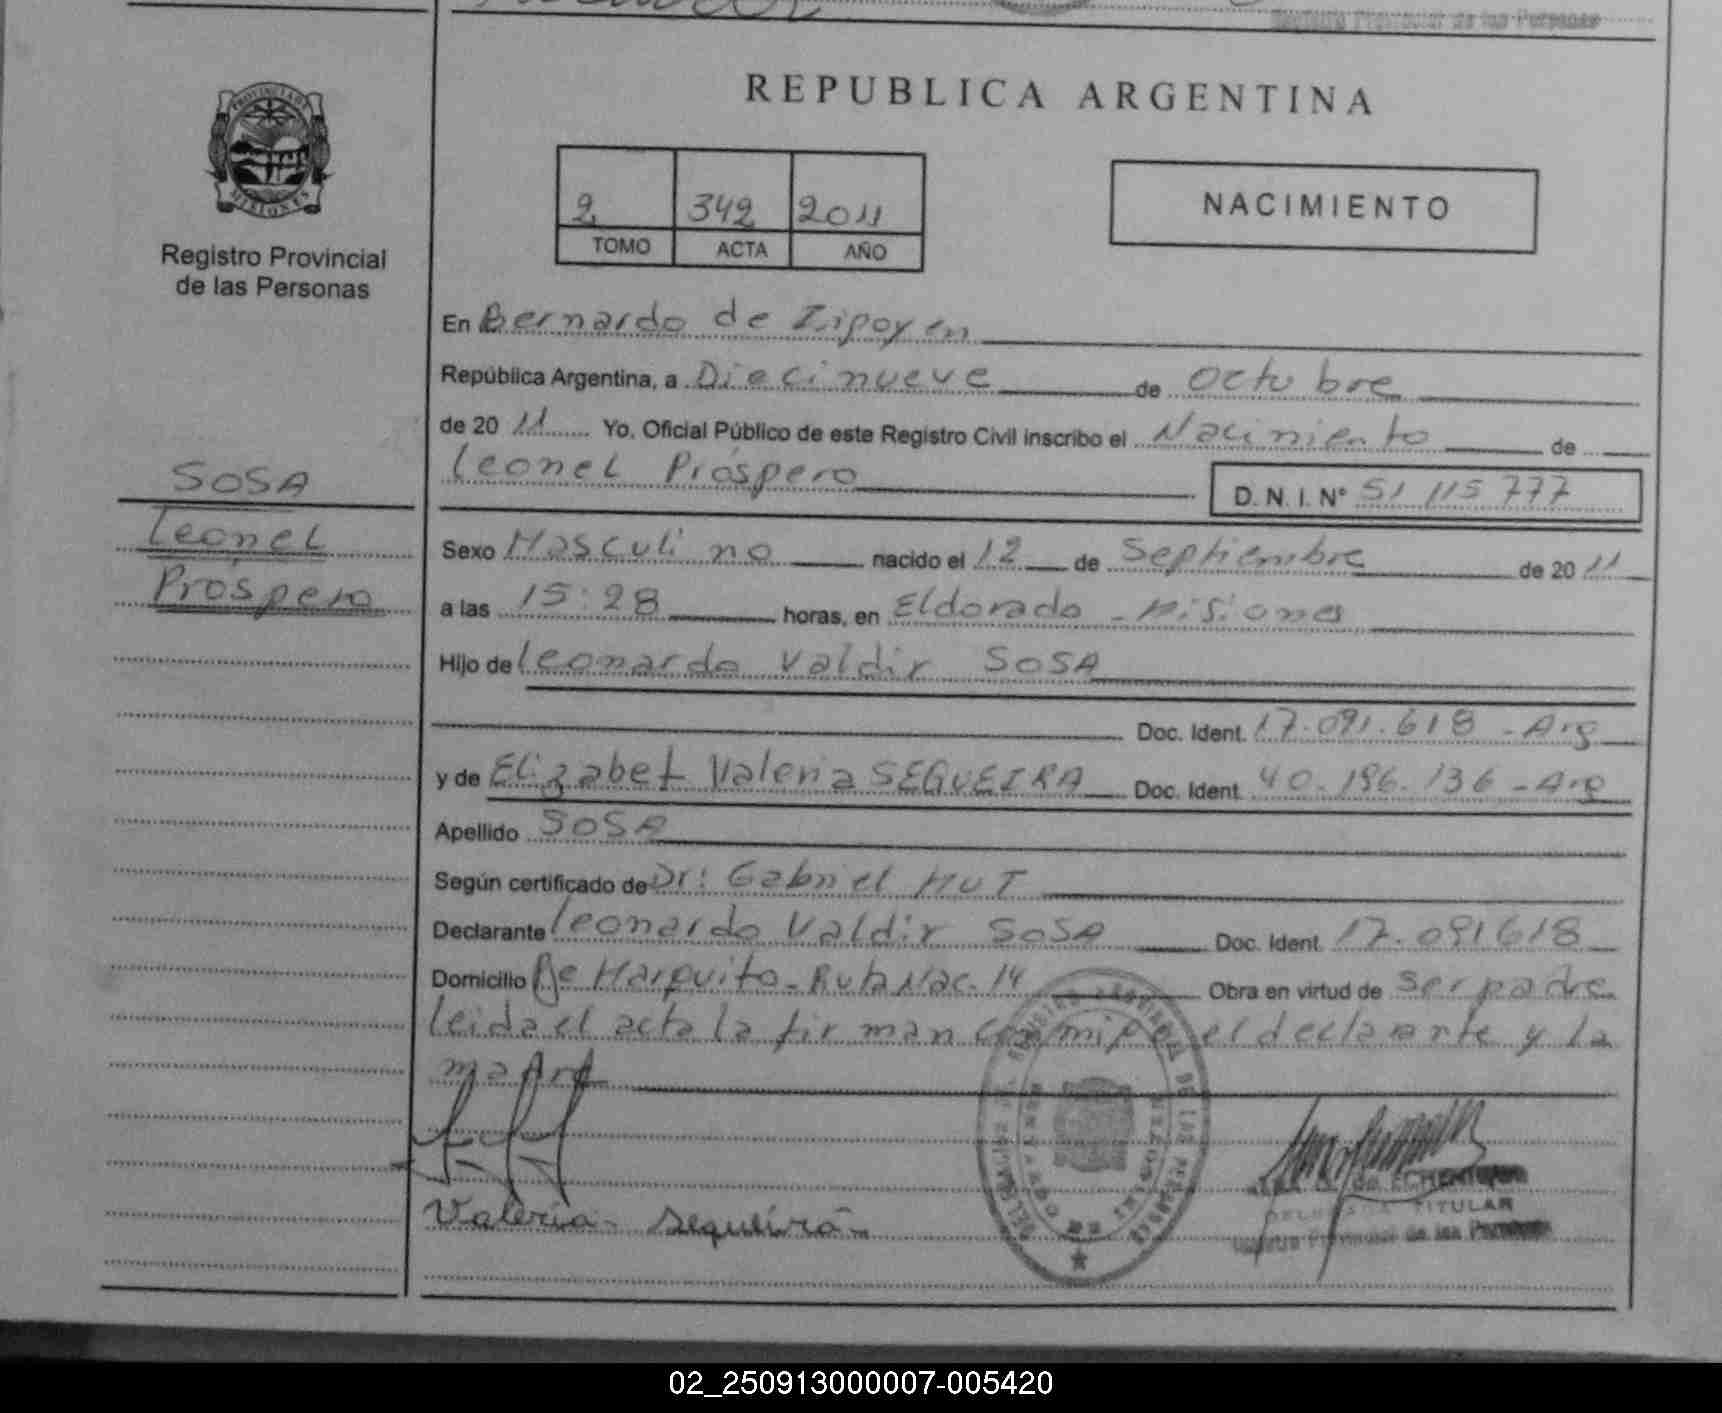 REPUBLICA ARGENTINA
PROVINCIA DE
MISIONES
Registro Provincial
de las Personas
2 342 2011
TOMO ACTA AÑO
NACIMIENTO
En Bernardo de Irigoyen
República Argentina, a Diecinueve de Octubre
de 20 11 Yo, Oficial Público de este Registro Civil inscribo el Nacimiento de
Leonel Próspero D. N. I. N° 51 115 777
SOSA
Leonel
Próspero
Sexo Masculino nacido el 12 de Septiembre de 20 11
a las 15:28 horas, en Eldorado - Misiones
Hijo de Leonardo Valdir SOSA
Doc. Ident. 17.091.618 - Arg
y de Elizabet Valeria SEQUEIRA Doc. Ident. 40.196.136 - Arg
Apellido SOSA
Según certificado de Dr: Gabriel HUT
Declarante Leonardo Valdir SOSA Doc. Ident. 17.091618
Domicilio Be Marquito - Ruta Nac. 14 Obra en virtud de ser padre
leida el acta la firman con migo el declarante y la
madre
Valeria Sequeira
de ECHENIQUE
DELEGADA TITULAR
Registro Provincial de las Personas
02_250913000007-005420